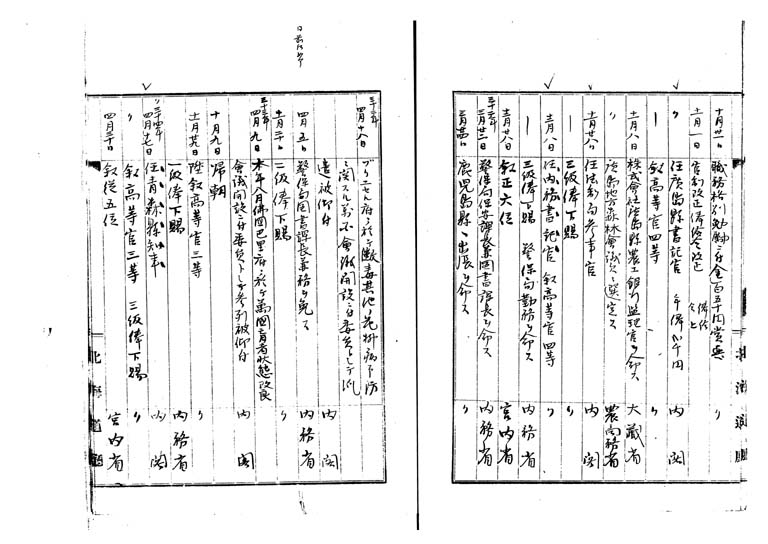 十月廿一日 職務格別勉励ニ付金百五十円賞与 〃
十一月一日 官制改正俸給令改正
〃 任広島縣書記官 年俸八千円 内閣
| 叙高等官四等 〃
十一月八日 株式會社広島縣農工銀行監理官ヲ命ス 大蔵省
〃 広島地方森林會議員ニ選定ス 農商務省
十一月廿八日 任法制局参事官 内閣
| 三級俸下賜 〃
十一月八日 任内務書記官 叙高等官四等 〃
| 三級俸下賜 警保局勤務ヲ命ス 内務省
十一月廿八日 叙正六位 宮内省
三十二年 二月廿二日 警保局保安課長兼図書課長ヲ命ス 内務省
二月廿四日 鹿児島縣ヘ出張ヲ命ス 〃
三十二年 四月十八日 ブリュセル府ニ於テ黴毒其他花柳病予防
ニ関スル萬国會議開設ニ付委員トシテ派
遣被仰付 内閣
四月五日 警保局図書課長兼務ヲ免ス 内務省
十一月二日 二級俸下賜 〃
三十三年 四月九日 本年八月佛国巴里府ニ於テ萬国盲者状態改良
會議開設ニ付委員トシテ参列被仰付 内閣
十月九日 帰朝
十一月廿八日 陞叙高等官三等
一級俸下賜 内務省
三十四年 四月十七日 任青森縣知事 内閣
〃 叙高等官三等 三級俸下賜 〃
四月三十日 叙従五位 宮内省
北海道廳